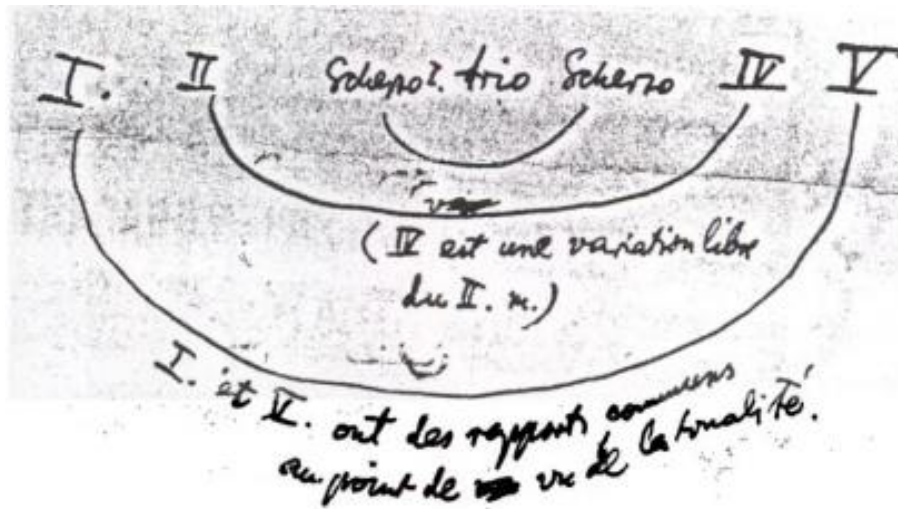 I. II Scherzo. trio Scherzo IV V
(IV est une variation libre
du II. m.)
I. et V. ont des rapports communs
au point de vue de la tonalité.